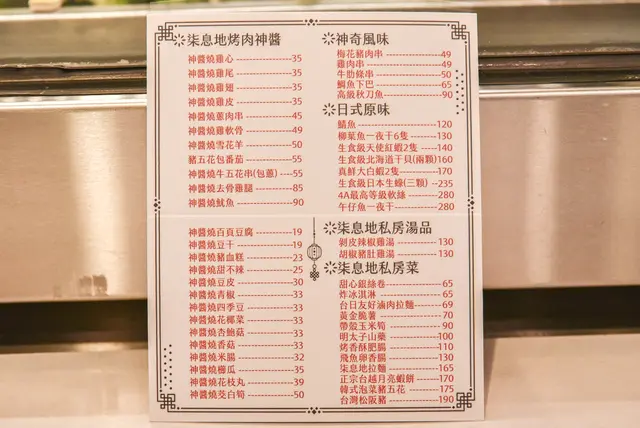 柒息地烤肉神醬
神醬燒雞心 35
神醬燒雞尾 35
神醬燒雞翅 35
神醬燒雞皮 35
神醬燒蔥肉串 45
神醬燒雞軟骨 49
神醬燒雪花羊 50
豬五花包番茄 55
神醬燒牛五花串(包蔥) 55
神醬燒去骨雞腿 85
神醬燒魷魚 90
神醬燒百頁豆腐 19
神醬燒豆干 19
神醬燒豬血糕 23
神醬燒甜不辣 25
神醬燒豆皮 30
神醬燒青椒 33
神醬燒四季豆 33
神醬燒花椰菜 33
神醬燒杏鮑菇 33
神醬燒香菇 33
神醬燒米腸 32
神醬燒櫛瓜 35
神醬燒花枝丸 39
神醬燒茭白筍 50
神奇風味
梅花豬肉串 49
雞肉串 49
牛肋條串 50
鯛魚下巴 65
高級秋刀魚 90
日式原味
鯖魚 120
柳葉魚一夜干6隻 130
生食級天使紅蝦2隻 140
生食級北海道干貝(兩顆) 160
真鮮大白蝦2隻 170
生食級日本生蠔(三顆) 235
4A最高等級軟絲 280
午仔魚一夜干 280
柒息地私房湯品
剝皮辣椒雞湯 130
胡椒豬肚雞湯 130
柒息地私房菜
甜心銀絲卷 65
炸冰淇淋 65
台日友好滷肉拉麵 69
黃金脆薯 70
帶殼玉米筍 90
明太子山藥 100
烤香酥肥腸 110
飛魚卵香腸 130
柒息地拉麵 165
正宗台越月亮蝦餅 170
韓式泡菜豬五花 175
台灣松阪豬 190